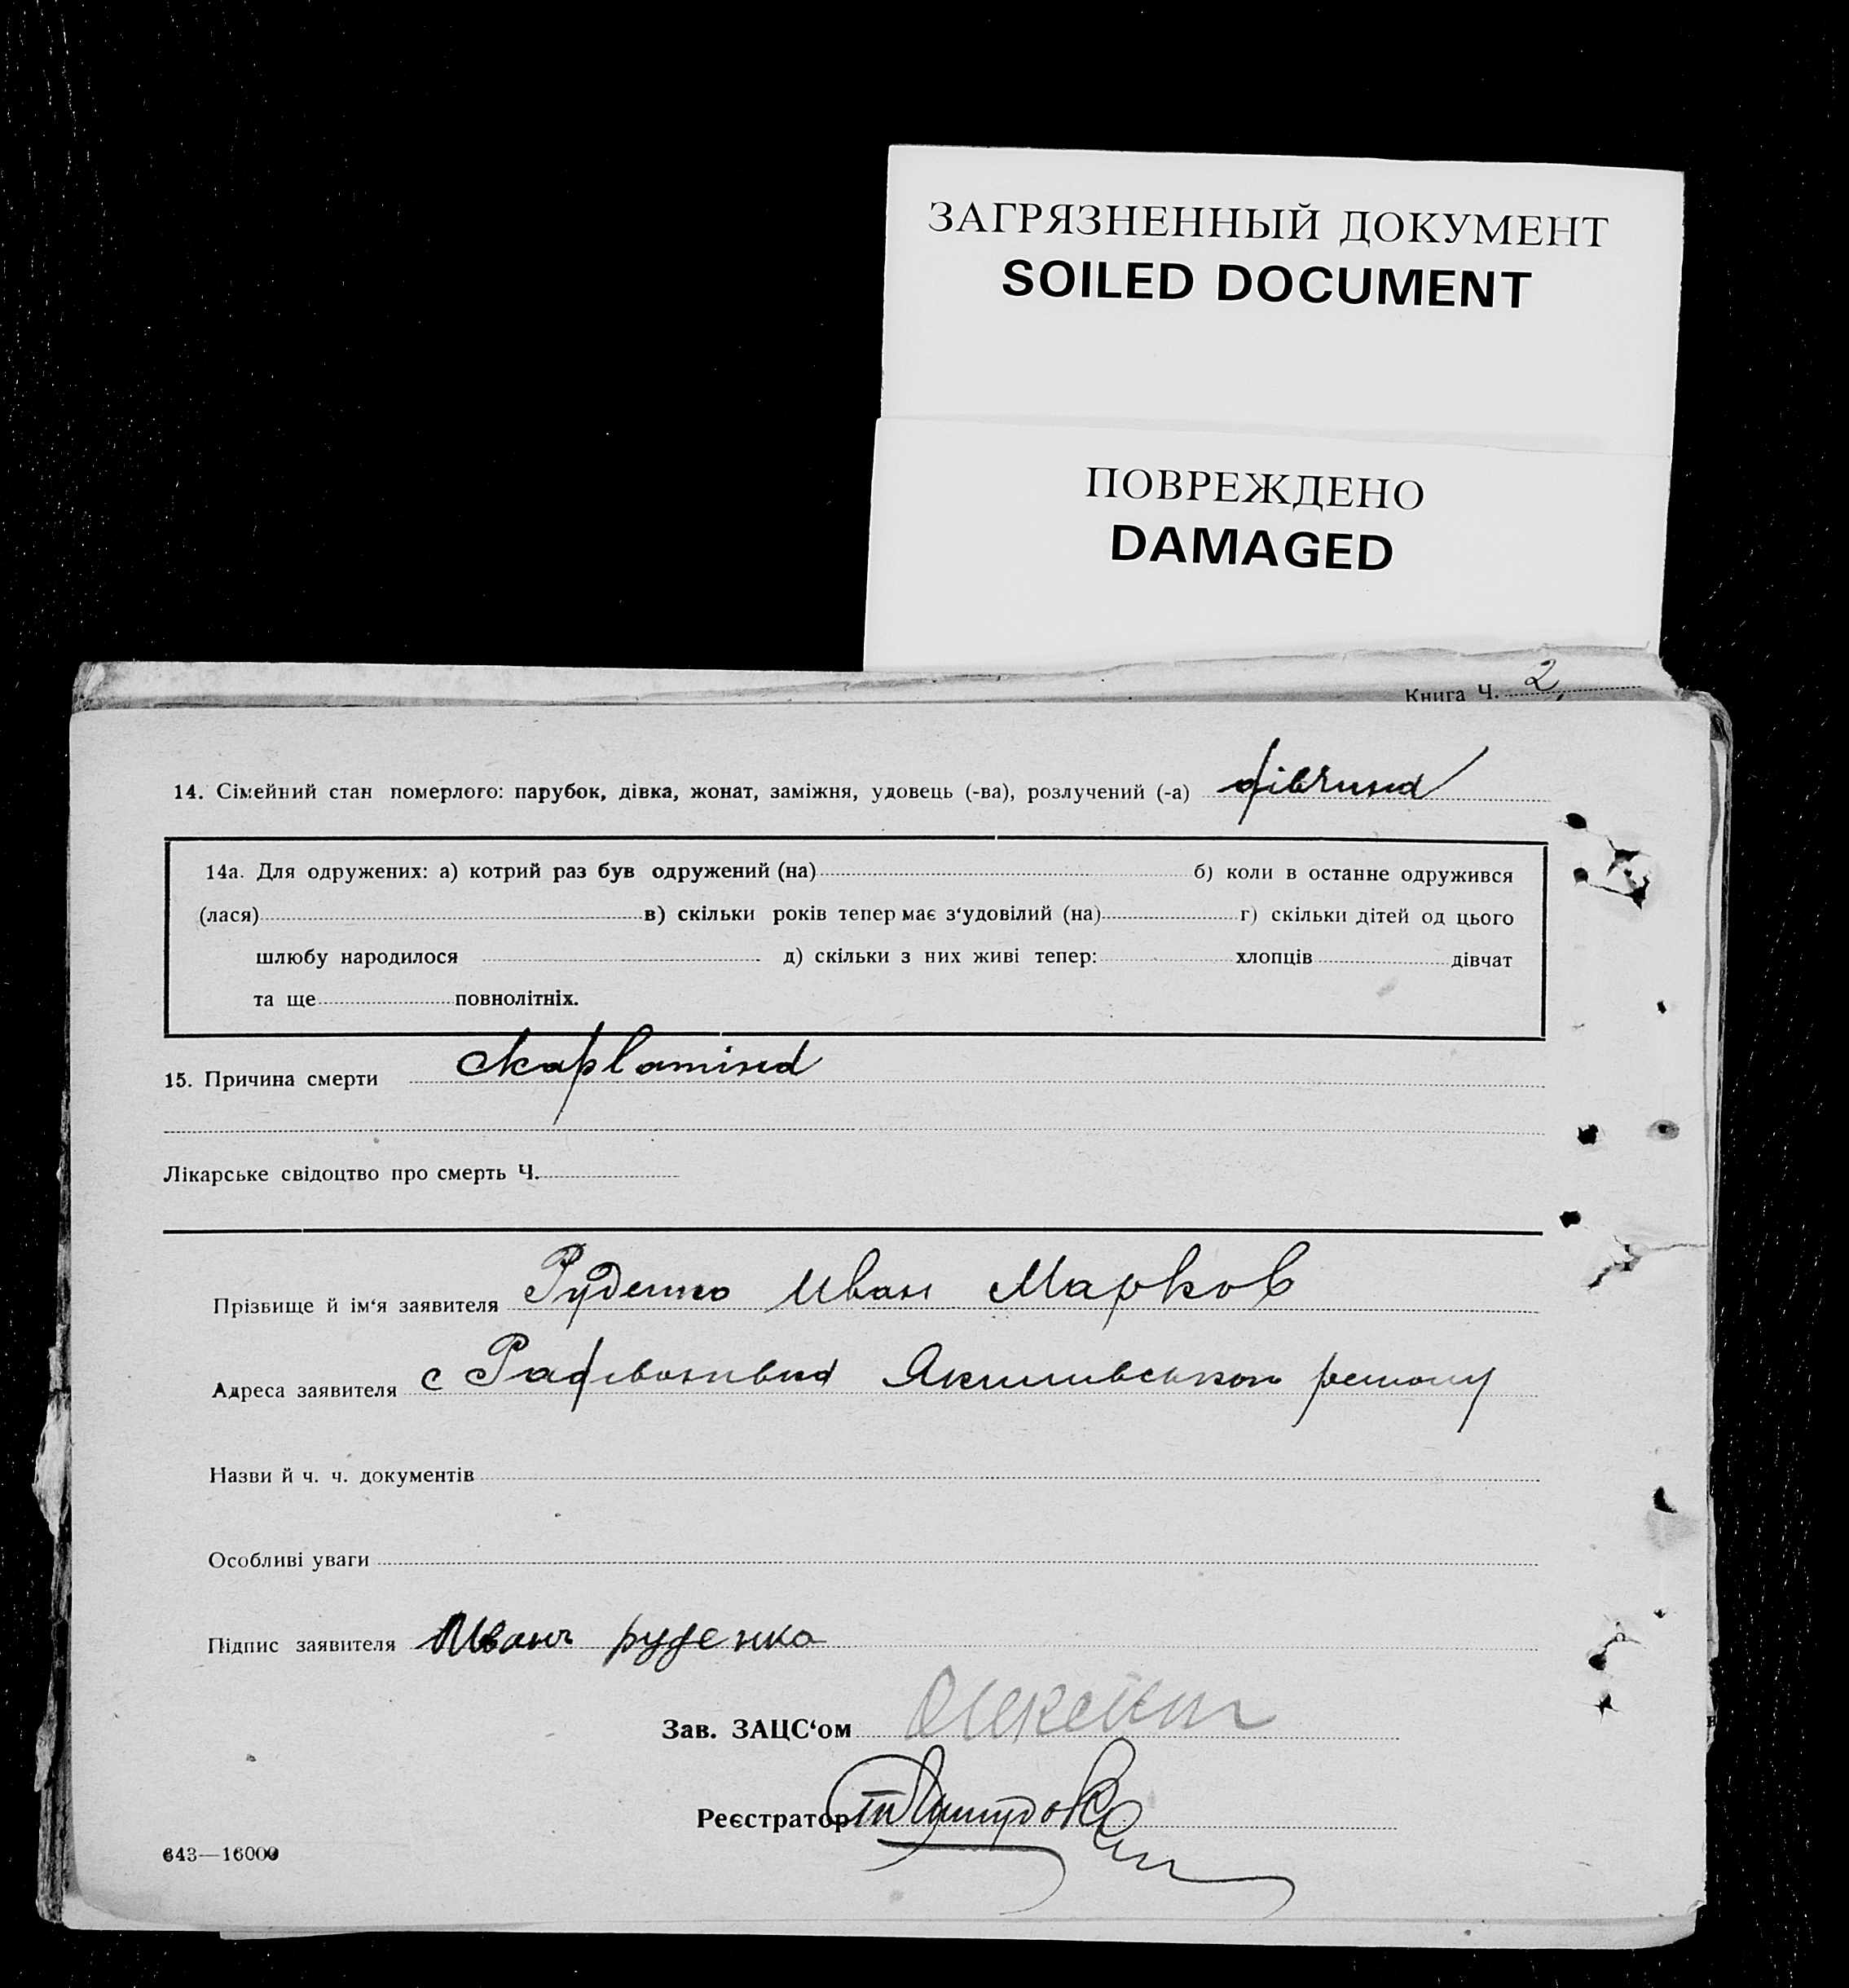 ЗАГРЯЗНЕННЫЙ ДОКУМЕНТ
SOILED DOCUMENT
ПОВРЕЖДЕНО
DAMAGED
Книга Ч. 2
14. Сімейний стан померлого: парубок, дівка, жонат, заміжня, удовець (-ва), розлучений (-а) дівчина
14а. Для одружених: а) котрий раз був одружений (на) б) коли в останне одружився
(лася) в) скільки років тепер має з‘удовілий (на) г) скільки дітей од цього
шлюбу народилося д) скільки з них живі тепер: хлопців дівчат
та ще повнолітніх.
15. Причина смерти скарлатина
Лікарське свідоцтво про смерть Ч.
Прізвище й ім‘я заявителя Руденко Иван Марков
Адреса заявителя с
Назви й ч. ч. документів
Особливі уваги
Підпис заявителя Иванъ руденко
Зав. ЗАЦС‘ом
Реєстратор
643—16000